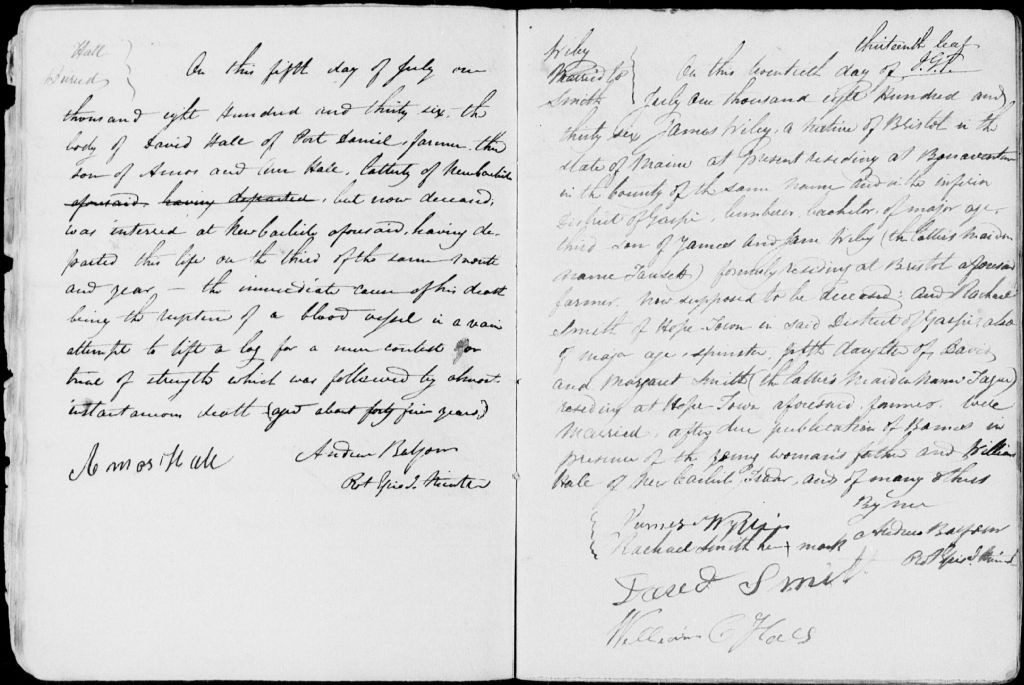 Hall
Buried
On this fifth day of July one
thousand eight Hundred and thirty six, the
body of David Hall of Port Daniel, farmer, the
son of Amos and Ann Hall, latterly of New Carlisle
aforesaid, having departed, but now deceased,
was interred at New Carlisle aforesaid, having de-
parted this life on the third of the same month
and year, — the immediate cause of his death
being the rupture of a blood vessel in a vain
attempt to lift a log for a mere contest or
trial of strength which was followed by almost
instantaneous death (aged about forty five years.)
Amos Hall
Andrew Balfour
Prot Epis l. Minister
thirteenth leaf
Wiley
Married to
Smith
On this twentieth day of J.G.T.
July one thousand eight Hundred and
thirty six James Wiley, a native of Bristol in the
state of Maine at present residing at Bonaventure
in the County of the same name and in the inferior
District of Gaspé, lumberer, bachelor, of major age,
third son of James and Jane Wiley (the latter's maiden
name Fausett) formerly residing at Bristol aforesaid
farmer, now supposed to be deceased: and Rachael
Smith of Hope-Town in said District of Gaspé; also
of major age, spinster, fifth daughter of David
and Margaret Smith (the latter's Maiden Name)
residing at Hope-Town aforesaid, farmer, were
Married, after due publication of Banns in
presence of the young woman's father and William
Hall of New Carlisle, and of many others
By me
Andrew Balfour
Prot Epis. l. Minist
James
Rachael Smith her x mark
David Smith
William C Hall